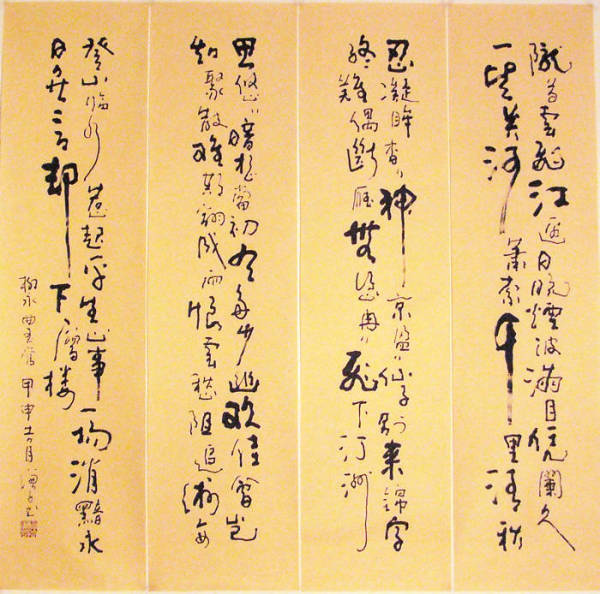 隴首雲飛江邊日晚煙波滿目凭闌久
一望关河蕭索千里清秋
忍凝眸杳〃神京盈〃仙子别來錦字
終難偶斷雁無憑冉〃飛下汀洲
思悠〃暗想當初有多少幽歡佳會豈
知聚散難期翻成雨恨雲愁阻追游每
登山臨水惹起平生心事一場消黯永
日無言却下層楼
柳永曲玉管 甲申 月 书